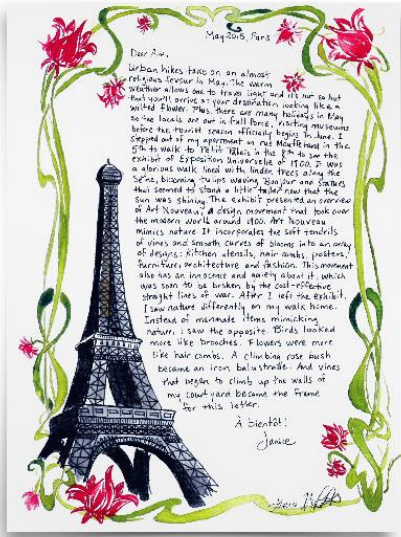 May 2015, Paris
Dear
Urban hikes take on an almost
religious fervour in May. The warm
weather allows one to travel light and it's not so hot
that you'll arrive at your destination looking like a
wilted flower. Plus, there are many holidays in May
so the locals are out in full force, visiting museums
before the tourist season officially begins in June. I
stepped out of my apartment on rue Mouffetard in the
5th to walk to Petit Palais in the 8th to see the
exhibit of Exposition Universelle of 1900. It was
a glorious walk lined with linden trees along the
Seine, blooming tulips waving Bonjour and statues
that seemed to stand a little taller now that the
sun was shining. The exhibit presented an overview
of Art Nouveau, a design movement that took over
the modern world around 1900. Art Nouveau
mimics nature. It incorporates the soft tendrils
of vines and smooth curves of blooms into an array
of designs: kitchen utensils, hair combs, posters,
furniture, architecture and fashion. This movement
also has an innocence and naivety about it, which
was soon to be broken by the cost-effective
straight lines of war. After I left the exhibit,
I saw nature differently on my walk home.
Instead of manmade items mimicking
nature, I saw the opposite. Birds looked
more like brooches. Flowers were more
like hair combs. A climbing rose bush
became an iron balustrade. And vines
that began to climb up the walls of
my courtyard became the frame
for this letter.
À bientôt!
Janice